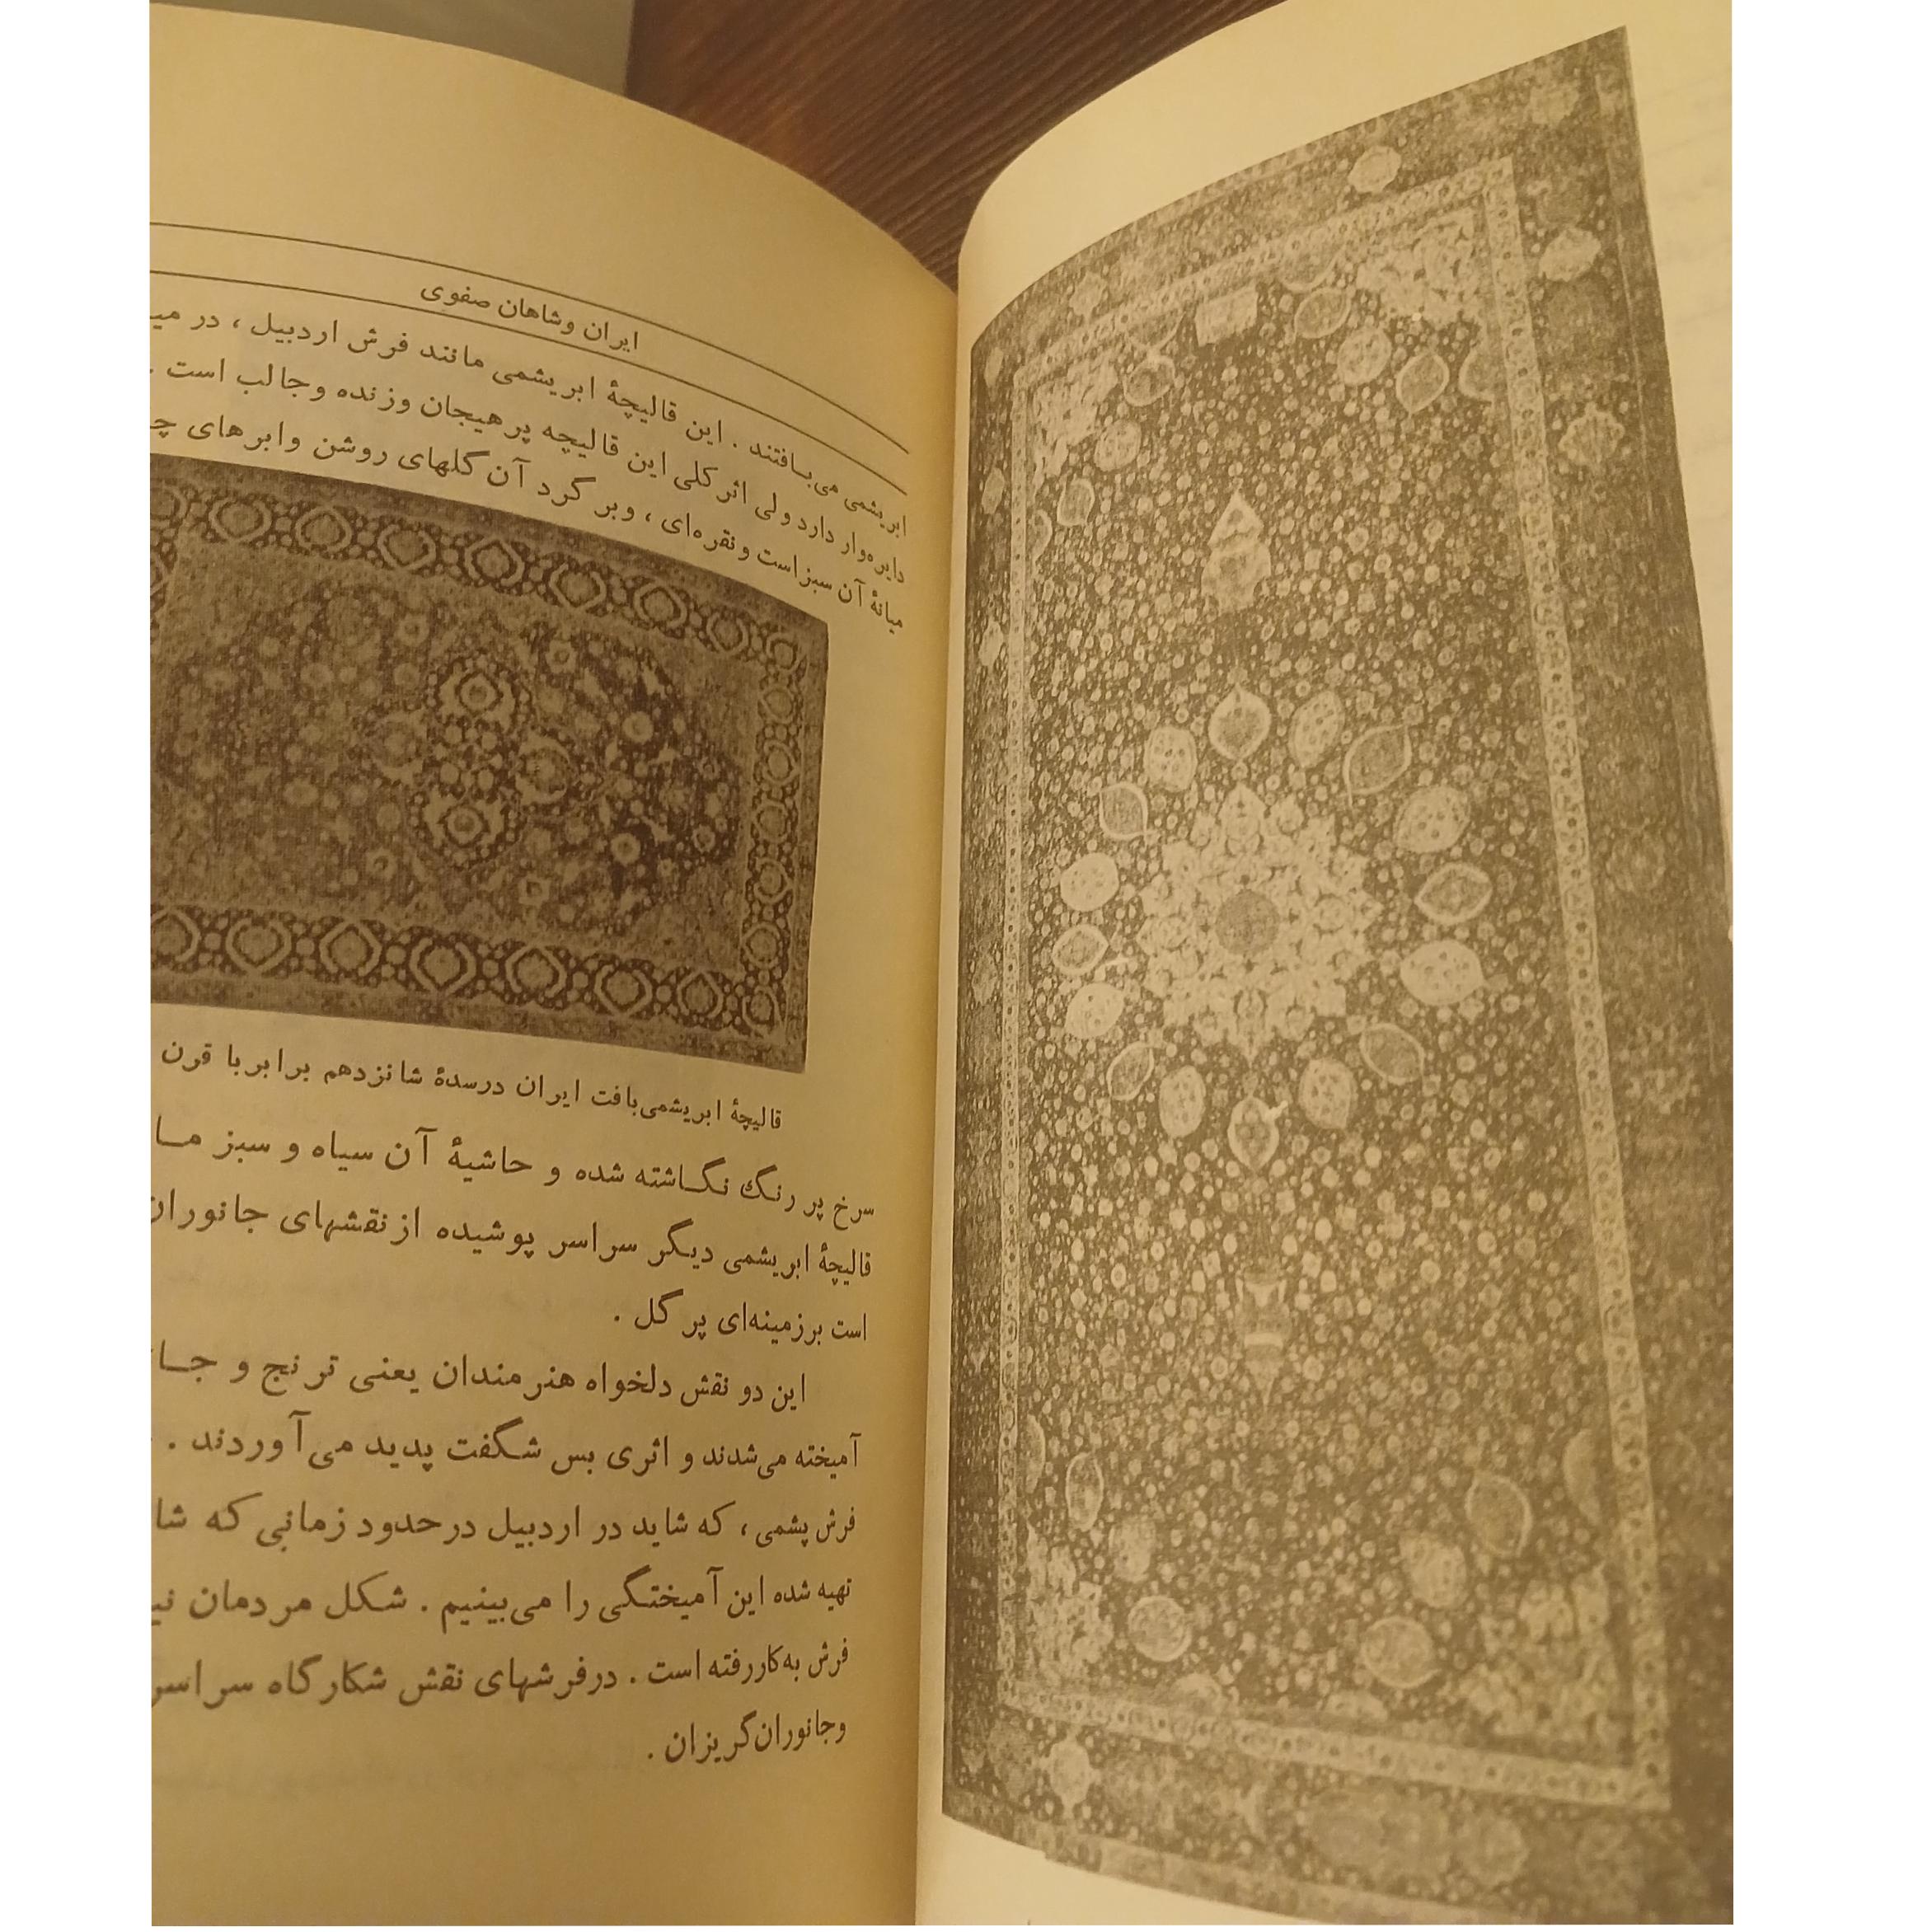 ایران وشاهان صفوی
ابریشمی می‌بافتند . این قالیچهٔ ابریشمی مانند فرش اردبیل ، در
دایره‌وار دارد ولی اثر کلی این قالیچه پرهیجان وزنده وجالب است .
میانهٔ آن سبزاست ونقره‌ای ، وبر گرد آن گلهای روشن وابرهای
قالیچهٔ ابریشمی‌بافت ایران درسدهٔ شانزدهم برابربا قرن
سرخ پر رنگ نگاشته شده و حاشیهٔ آن سیاه و سبز
قالیچهٔ ابریشمی دیگر سراسر پوشیده ازنقشهای جانوران
است برزمینه‌ای پر گل .
این دو نقش دلخواه هنرمندان یعنی ترنج و
آمیخته می‌شدند و اثری بس شگفت پدید می‌آوردند .
فرش پشمی ، که شاید در اردبیل درحدود زمانی که
تهیه شده این آمیختگی را می‌بینیم . شکل مردمان
فرش به‌کاررفته است . درفرشهای نقش شکارگاه سراسر
وجانوران‌گریزان .